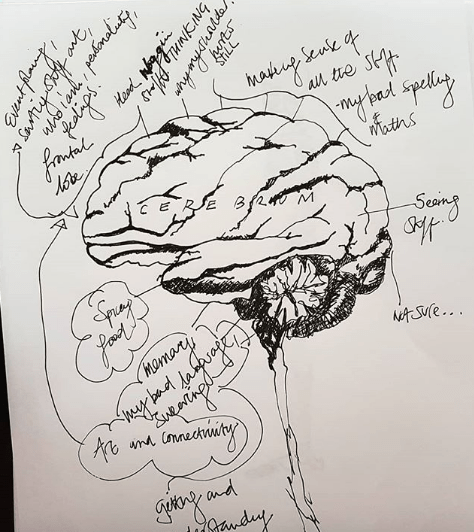 Event planning,
sorting stuff out,
who i am, personality,
feelings.
frontal
lobe.
Head
NOT THINKING
why my shoulder
hurts
STILL
making sense of
all the stuff.
my bad spelling
&
Maths
CEREBRUM
Seeing
stuff.
NOT SURE...
food
memory
my bad language,
swearing!
Art and connectivity
getting and